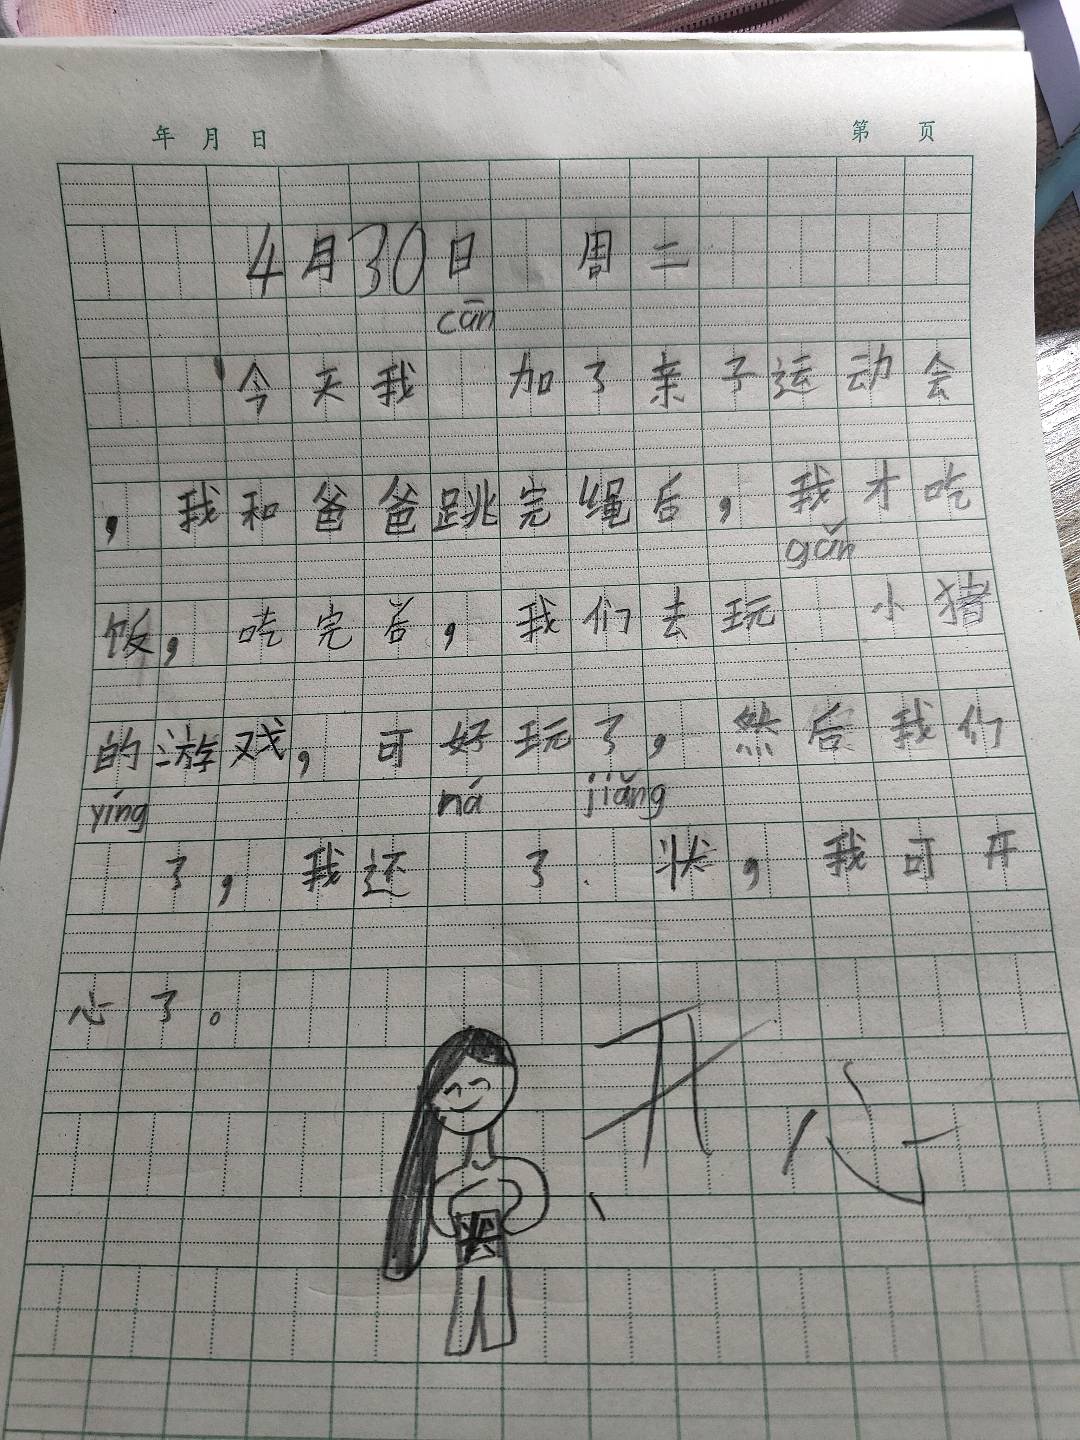 年 月 日 第 页
4月30日 周二
cān
今天我 加了亲子运动会
，我和爸爸跳完绳后，我才吃
gǎn
饭，吃完后，我们去玩 小猪
的游戏，可好玩了，然后我们
yíng ná jiǎng
了，我还 了 状，我可开
心了。
开心
奖